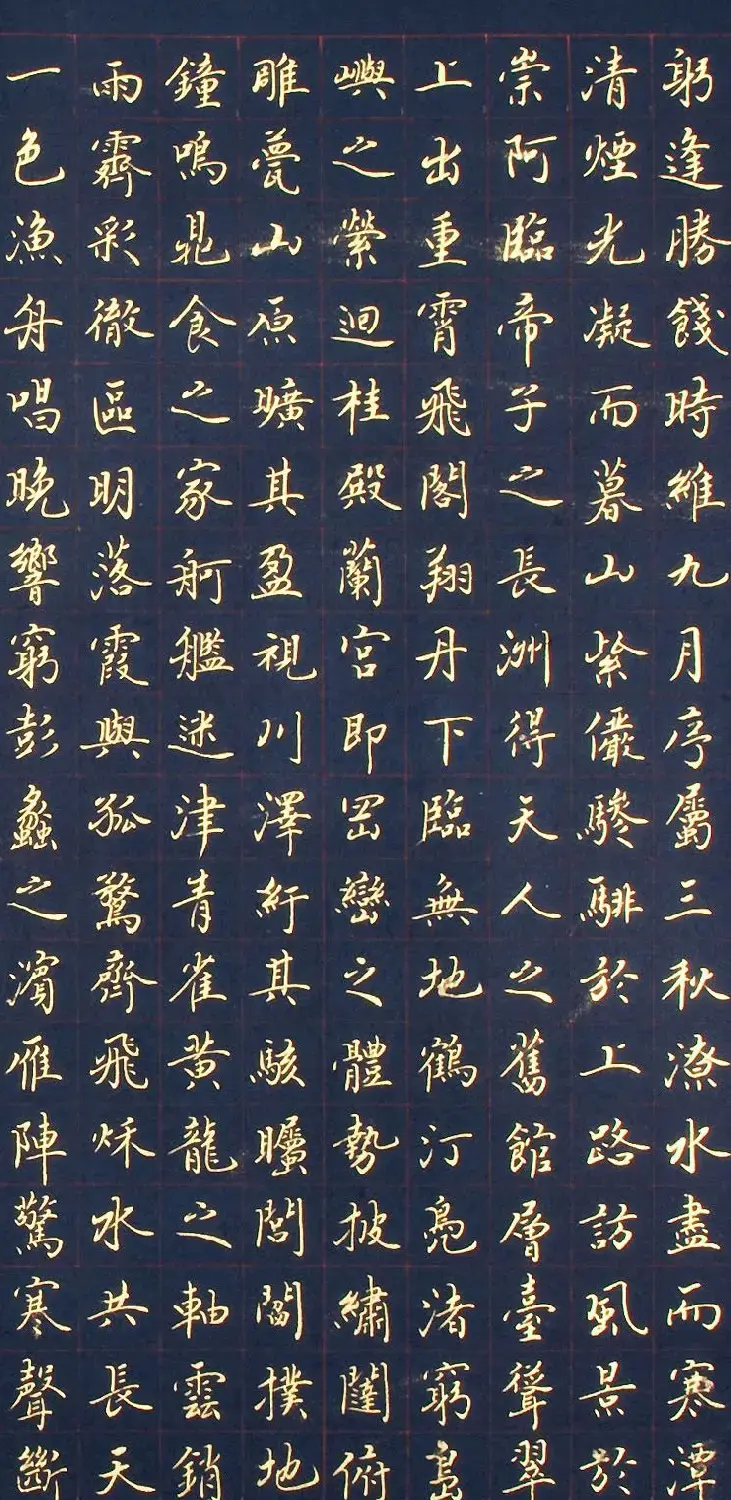 躬逢勝餞時維九月序屬三秋潦水盡而寒潭
清煙光凝而暮山紫儼驂騑於上路訪風景於
崇阿臨帝子之長洲得天人之舊館層臺聳翠
上出重霄飛閣翔丹下臨無地鶴汀鳧渚窮島
嶼之縈迴桂殿蘭宮即岡巒之體勢披繡闥俯
雕甍山原曠其盈視川澤紆其駭矚閭閻撲地
鐘鳴鼎食之家舸艦迷津青雀黃龍之軸雲銷
雨霽彩徹區明落霞與孤鶩齊飛秋水共長天
一色漁舟唱晚響窮彭蠡之濱雁陣驚寒聲斷